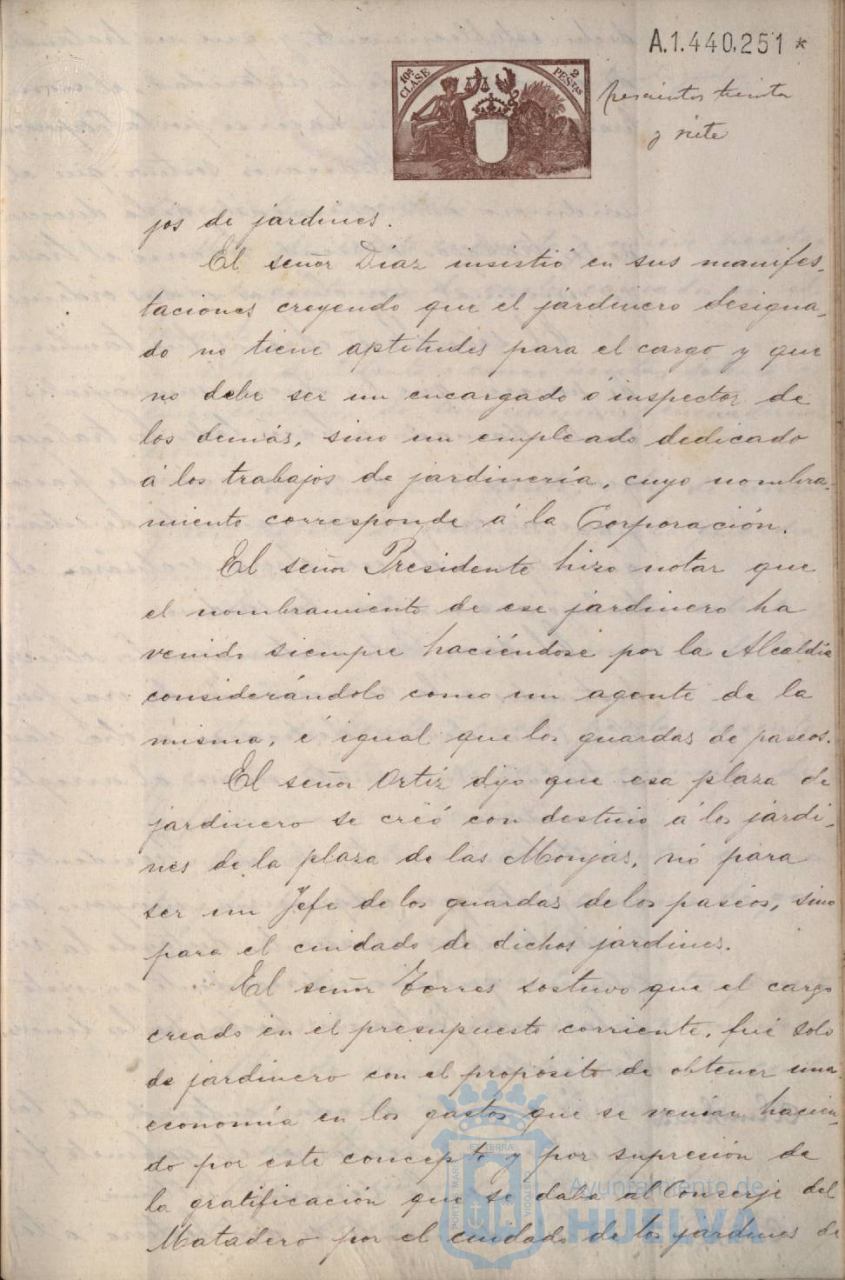 A.1.440.251 *
10ª CLASE 2 PESETAS
trescientos treinta
y siete
jos de jardines.
El señor Díaz insistió en sus manifes-
taciones creyendo que el jardinero designa-
do no tiene aptitudes para el cargo y que
no debe ser un encargado ó inspector de
los demás, sino un empleado dedicado
á los trabajos de jardinería, cuyo nombra-
miento corresponde á la Corporación.
El señor Presidente hizo notar que
el nombramiento de ese jardinero ha
venido siempre haciéndose por la Alcaldía
considerándolo como un agente de la
misma, é igual que los guardas de paseos.
El señor Ortiz dijo que esa plaza de
jardinero se creó con destino á los jardi-
nes de la plaza de las Monjas, nó para
ser un Jefe de los guardas de los paseos, sino
para el cuidado de dichos jardines.
El señor Torres sostuvo que el cargo
creado en el presupuesto corriente, fué solo
de jardinero con el propósito de obtener una
economía en los gastos que se venían hacien-
do por este concepto y por supresión de
la gratificación que se daba al Conserje del
Matadero por el cuidado de los jardines de
Ayuntamiento de
HUELVA